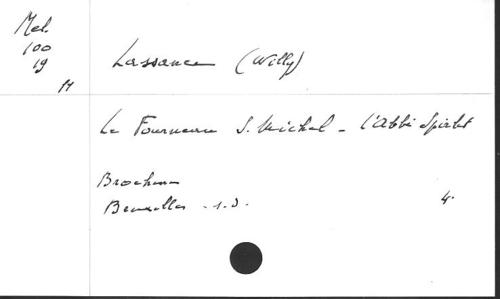 Mel.
100
19
M
Lassance (Willy)
Le Fourneau S. Michel - l'Abbé Spirlet
Brochure
Bruxelles - s.d.
4°